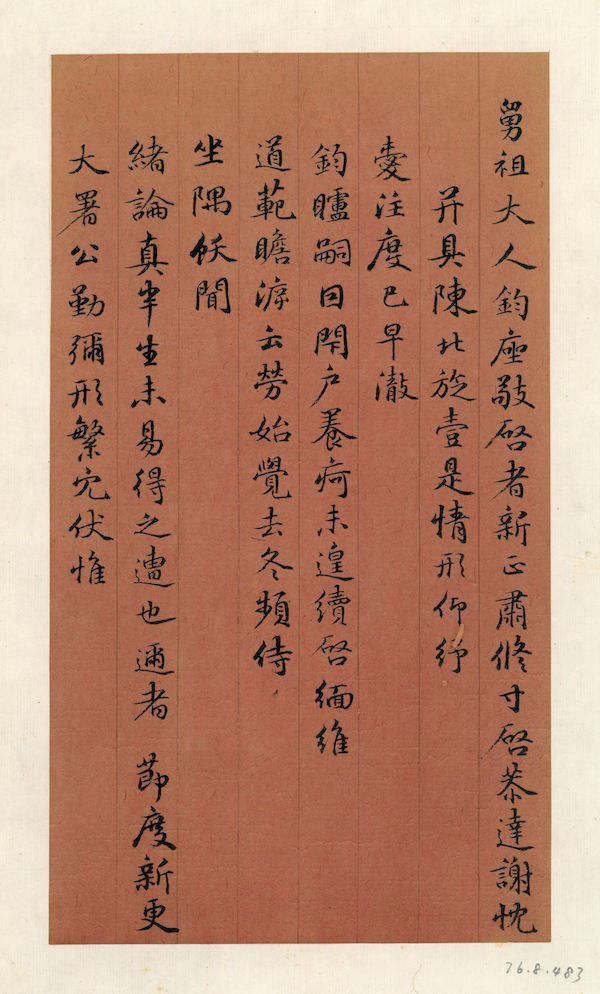 舅祖大人鈞座敬啓者新正肅修寸啓恭達謝忱
并具陳北旋壹是情形仰紓
憂注度已早澈
鈞矑嗣日閉戶養疴未遑續啓緬維
道範瞻溯云勞始覺去冬頻侍
坐隅飫聞
緒論真半生未易得之遭也邇者 節度新更
大署公勤彌形繁冗伏惟
76.8.483